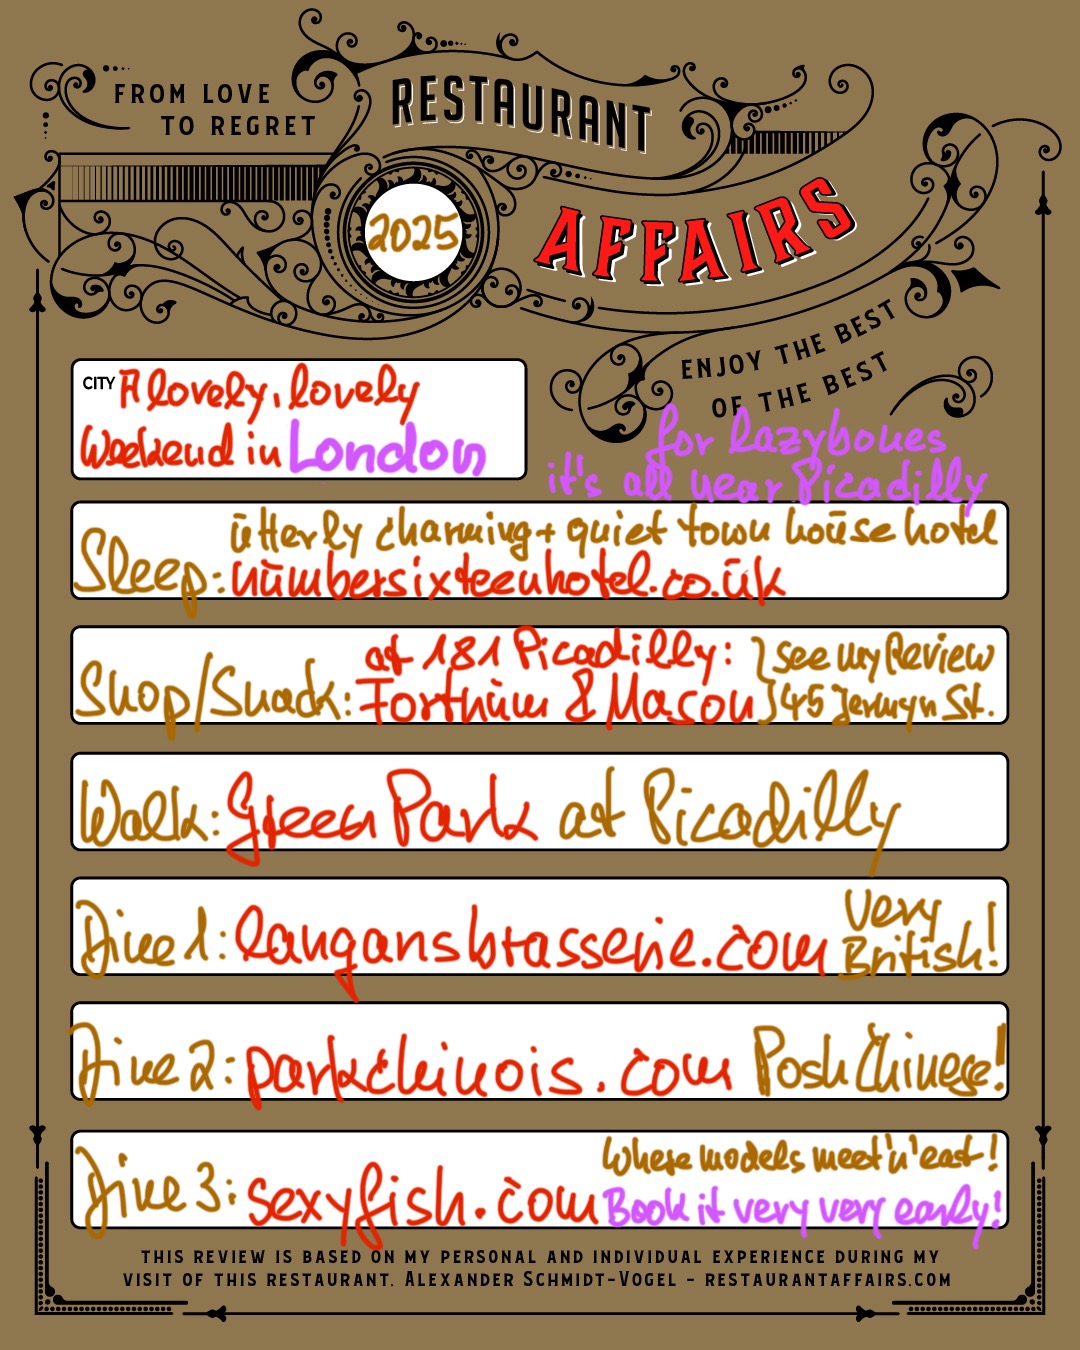 FROM LOVE
TO REGRET
RESTAURANT
AFFAIRS
2025
ENJOY THE BEST
OF THE BEST
CITY A lovely, lovely
Weekend in London
for lazybones
it's all near Picadilly
Sleep: utterly charming + quiet town house hotel
numbersixteenhotel.co.uk
Shop/Snack: at 181 Picadilly: } see my Review
Forthum & Mason } 45 Jermyn St.
Walk: Green Park at Picadilly
Dine 1: langansbrasserie.com Very
British!
Dine 2: parkchinois.com Posh Chinese!
Dine 3: sexyfish.com Where models meet 'n' eat!
Book it very very early!
THIS REVIEW IS BASED ON MY PERSONAL AND INDIVIDUAL EXPERIENCE DURING MY
VISIT OF THIS RESTAURANT. ALEXANDER SCHMIDT-VOGEL – RESTAURANTAFFAIRS.COM